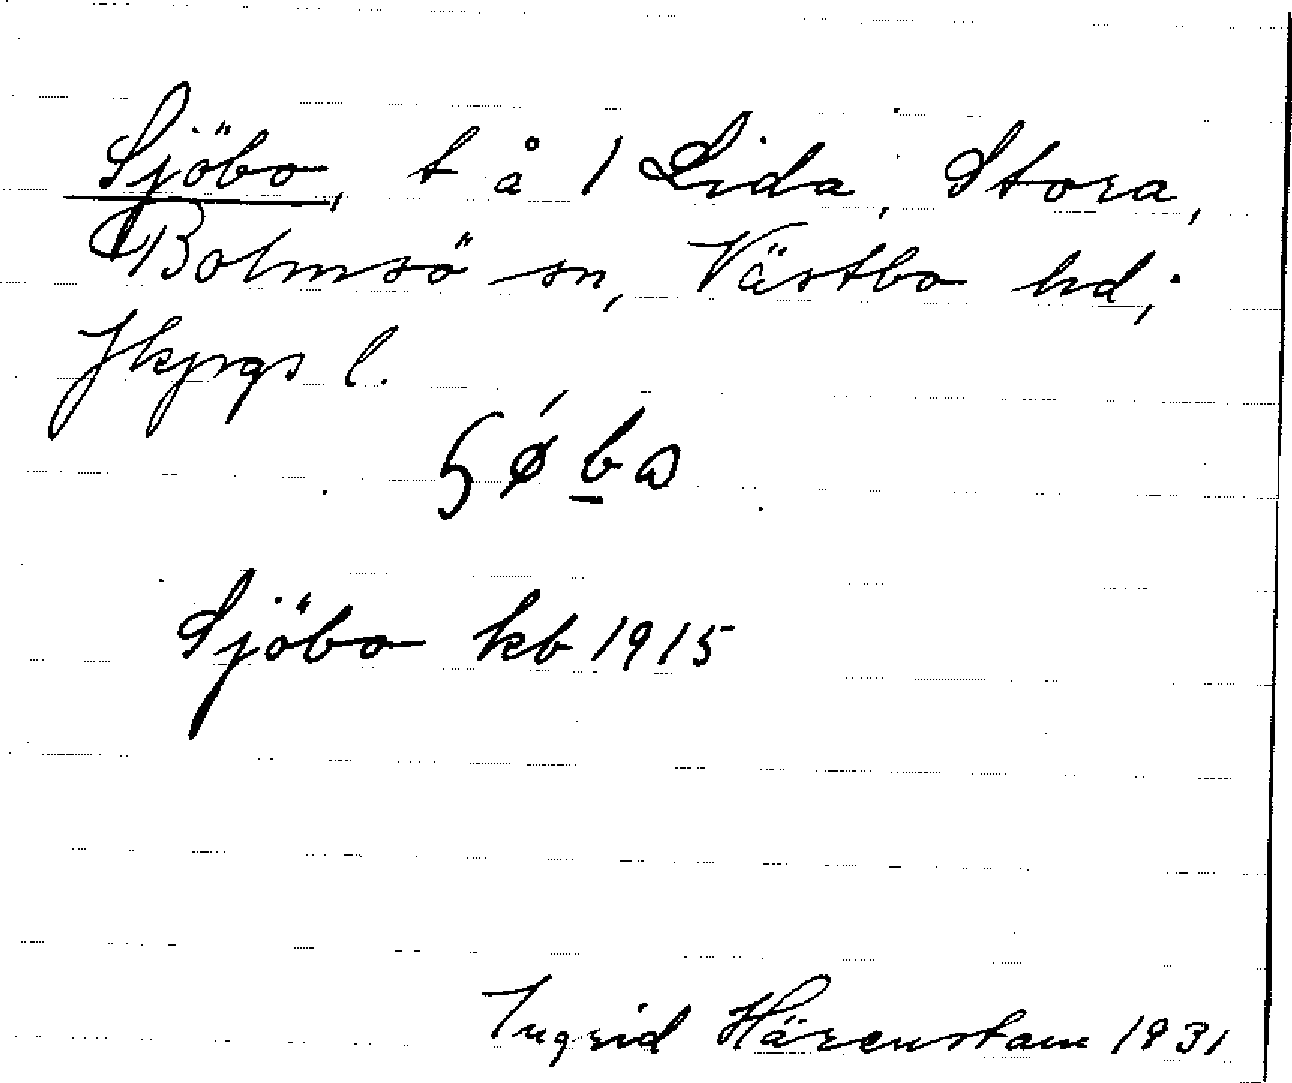 Sjöbo, t å 1 Lida, Stora,
Bolmsö sn, Västbo hd,
Jkpgs l.
Sjöbo kb 1915
Ingrid Härenstam 1931